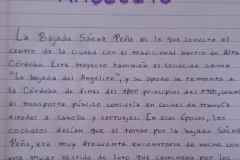 ANGELITO
La Bajada Sáenz Peña es la que conecta el
centro de la ciudad con el tradicional barrio de Alta
Córdoba. Este trayecto también es conocido como
"La bajada del Angelito", y su apodo se remonta a
la Córdoba de fines del 1800 principios del 1900, cuando
el transporte público consistía en coches de tranvía
tirados a caballo y carruajes. En esas épocas, los
cocheros decían que al tomar por la bajada Sáenz
Peña, era muy frecuente encontrarse de noche con
una mujer vestida de luto que caminaba por los